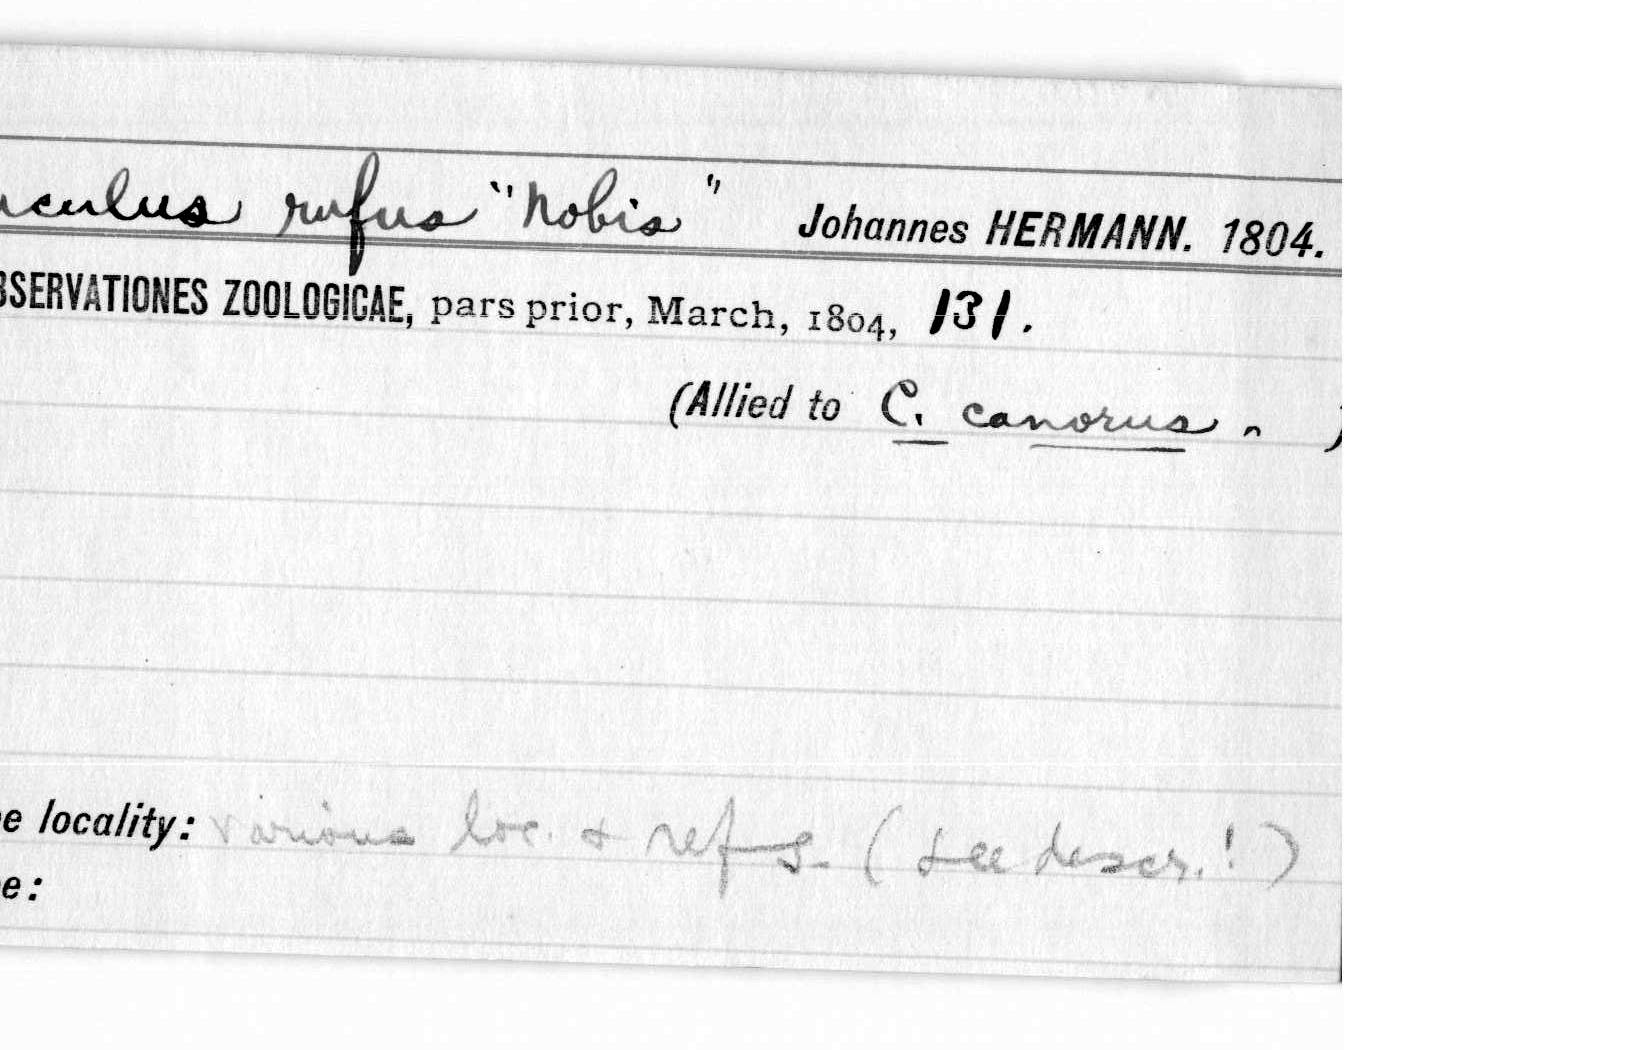 uculus rufus "Nobis" Johannes HERMANN. 1804.
BSERVATIONES ZOOLOGICAE, pars prior, March, 1804, 131.
(Allied to C. canorus. )
e locality: various loc. & refs. (see descr.!)
e: